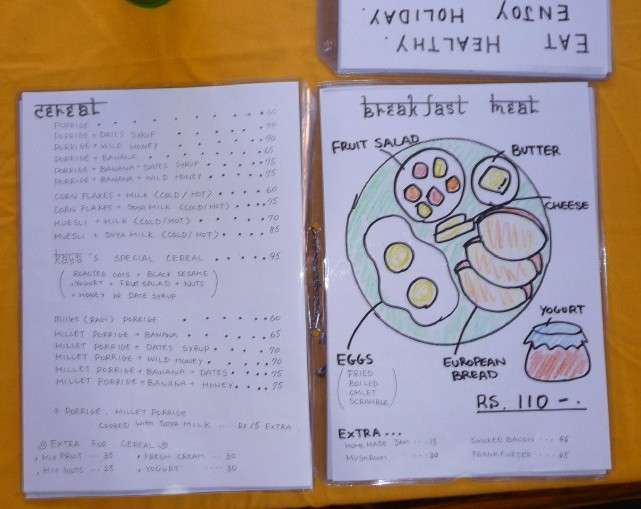 EAT HEALTHY.
ENJOY HOLIDAY.
cereal
PORRIGE . . . . . . . 60
PORRIGE + DATES SYRUP . . . . 70
PORRIGE + WILD HONEY . . . . 70
PORRIGE + BANANA . . . . . 65
PORRIGE + BANANA + DATES SYRUP . . . . 75
PORRIGE + BANANA + WILD HONEY . . . . 75
CORN FLAKES + MILK (COLD/HOT) . . . . 60
CORN FLAKES + SOYA MILK (COLD/HOT) . . . . 75
MUESLI + MILK (COLD/HOT) . . . . 70
MUESLI + SOYA MILK (COLD/HOT) . . . . 85
'S SPECIAL CEREAL . . . . 95
( ROASTED OATS + BLACK SESAME
+ YOGURT + FRUIT SALAD + NUTS
+ HONEY OR DATE SYRUP )
MILLET (RAGI) PORRIGE . . . . 60
MILLET PORRIGE + BANANA . . . . 65
MILLET PORRIGE + DATES SYRUP . . . . 70
MILLET PORRIGE + WILD HONEY . . . . 70
MILLET PORRIGE + BANANA + DATES . . . . 75
MILLET PORRIGE + BANANA + HONEY . . . . 75
PORRIGE, MILLET PORRIGE
COOKED WITH SOYA MILK ... RS 15 EXTRA
EXTRA FOR CEREAL
MIX FRUIT ... 35 FRESH CREAM ... 30
MIX NUTS ... 25 YOGURT ... 30
breakfast meal
FRUIT SALAD
BUTTER
CHEESE
YOGURT
EGGS
( FRIED
BOILED
OMLET
SCRAMBLE )
EUROPEAN
BREAD
RS. 110 -.
EXTRA...
HOME MADE JAM ... 15 SMOKED BACON ... 65
MUSHROOM ... 30 FRANKFURTER ... 65